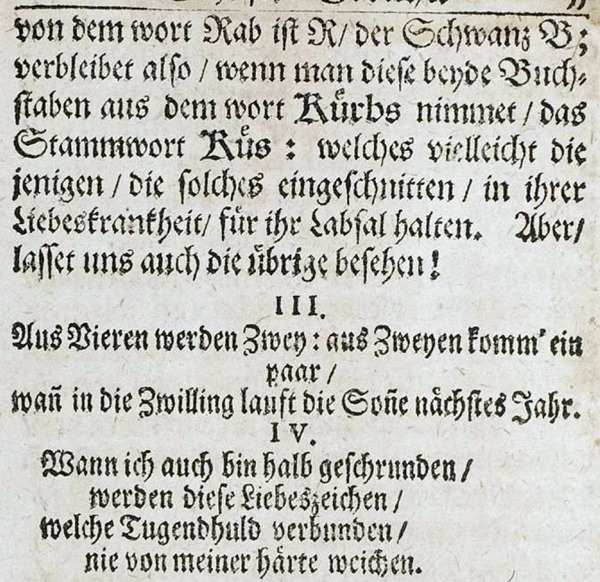 von dem wort Rab ist R/ der Schwanz B;
verbleibet also / wenn man diese beyde Buch-
staben aus dem wort Kürbs nimmet / das
Stammwort Küs : welches vielleicht die
jenigen / die solches eingeschnitten / in ihrer
Liebeskrankheit/ für ihr Labsal halten. Aber/
lasset uns auch die übrige besehen!
III.
Aus Vieren werden Zwey : aus Zweyen komm' ein
paar /
wañ in die Zwilling lauft die Soñe nächstes Jahr.
IV.
Wann ich auch bin halb geschrunden /
werden diese Liebeszeichen /
welche Tugendhuld verbunden /
nie von meiner härte weichen.